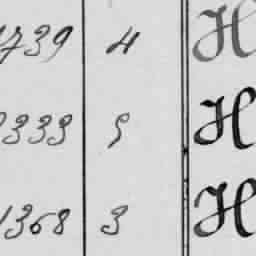 1739 4 H
333 5 H
1368 3 H